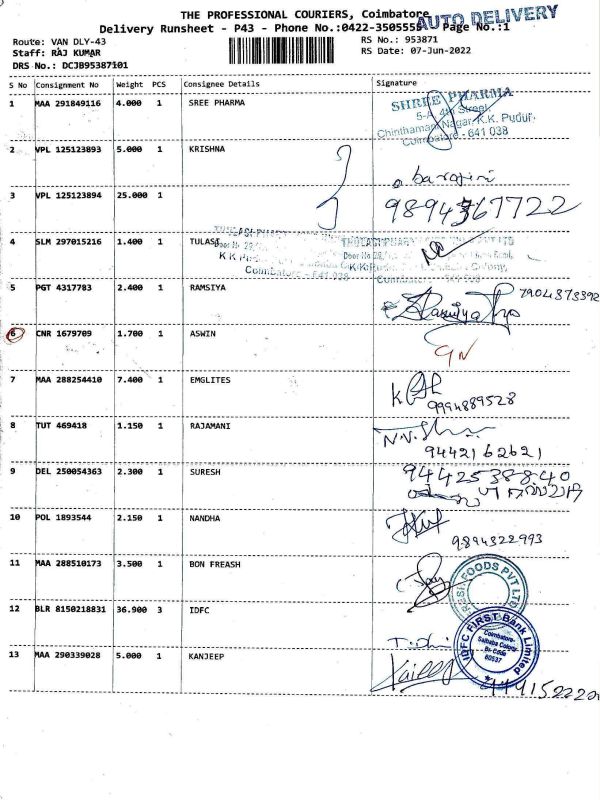 THE PROFESSIONAL COURIERS, Coimbatore
AUTO DELIVERY
Delivery Runsheet - P43 - Phone No.:0422-3505555 Page No.:1
Route: VAN DLY-43
RS No.: 953871
Staff: RAJ KUMAR
RS Date: 07-Jun-2022
DRS No.: DCJB95387101
S No Consignment No Weight PCS Consignee Details Signature
1 MAA 291849116 4.000 1 SREE PHARMA
SHREE PHARMA
5-A, 4th Street,
Chinthamani Nagar, K.K. Pudur,
Coimbatore - 641 038
2 VPL 125123893 5.000 1 KRISHNA
3 VPL 125123894 25.000 1
9894367722
4 SLM 297015216 1.400 1 TULASI
Coimbatore - 641 038
5 PGT 4317783 2.400 1 RAMSIYA
7904873392
6 CNR 1679709 1.700 1 ASWIN
7 MAA 288254410 7.400 1 EMGLITES
9994889528
8 TUT 469418 1.150 1 RAJAMANI
9442162621
9 DEL 250054363 2.300 1 SURESH
9442538840
10 POL 1893544 2.150 1 NANDHA
9894322993
11 MAA 288510173 3.500 1 BON FREASH
FOODS PVT LTD
12 BLR 8150218831 36.900 3 IDFC
IDFC FIRST Bank Limited
Coimbatore-
Saibaba Colony,
Br. Code
60537
13 MAA 290339028 5.000 1 KANJEEP